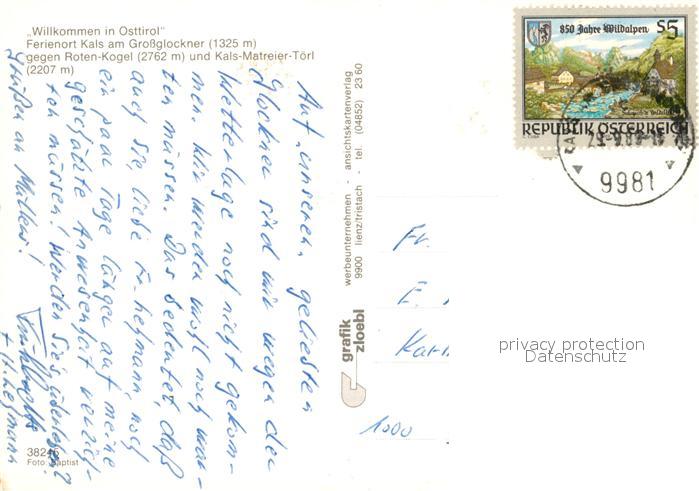 „Willkommen in Osttirol"
Ferienort Kals am Großglockner (1325 m)
gegen Roten-Kogel (2762 m) und Kals-Matreier-Törl
(2207 m)
Auf „unseren" geliebten
Glockner sind wir wegen der
Wetterlage noch nicht gekom-
men. Wir werden wohl noch war-
ten müssen. Das bedeutet, daß
auch Sie, liebe Fr. Hegmann, noch
ein paar Tage länger auf meine
geschätzte Anwesenheit verzich-
ten müssen! Werden Sie's überleben?
Grüßen an Muttern!
+ H. Hegmann
38246
Foto: Baptist
werbeunternehmen - ansichtskartenverlag
9900 lienz/tristach - tel. (04852) 23 60
grafik
zloebl
850 Jahre Wildalpen
S5
REPUBLIK ÖSTERREICH
9981
Fr.
E.
Karl
1000
privacy protection
Datenschutz